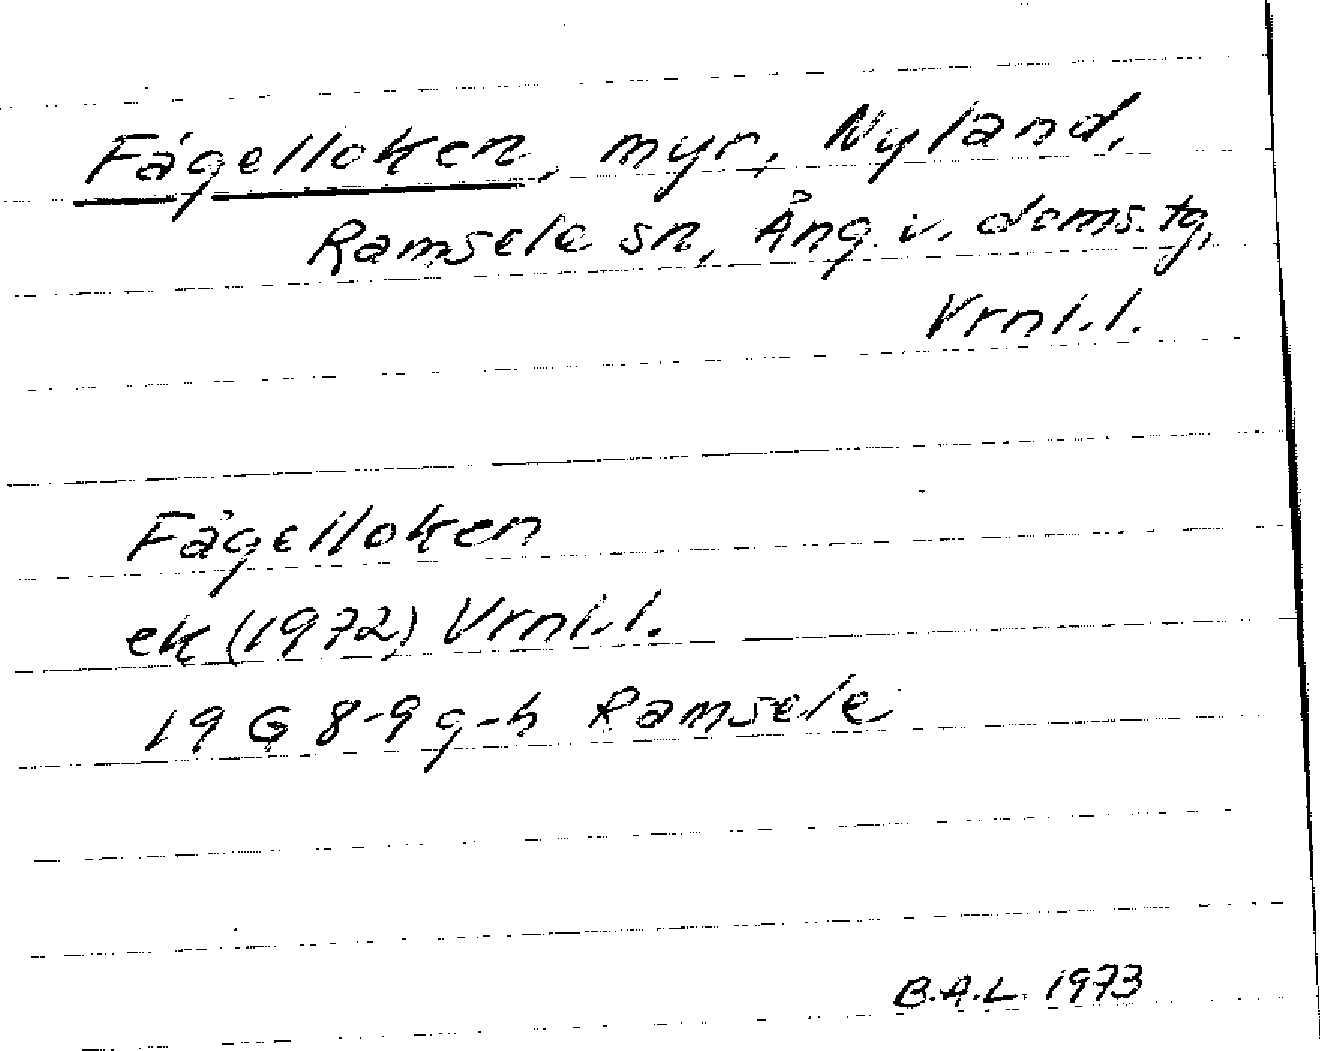 Fågelloken, myr, Nyland,
Ramsele sn, Ång. v. doms. tg,
Vrnl.l.
Fågelloken
ek (1972) Vrnl.l.
19 G 8-9 g-h Ramsele
B.A.L. 1973